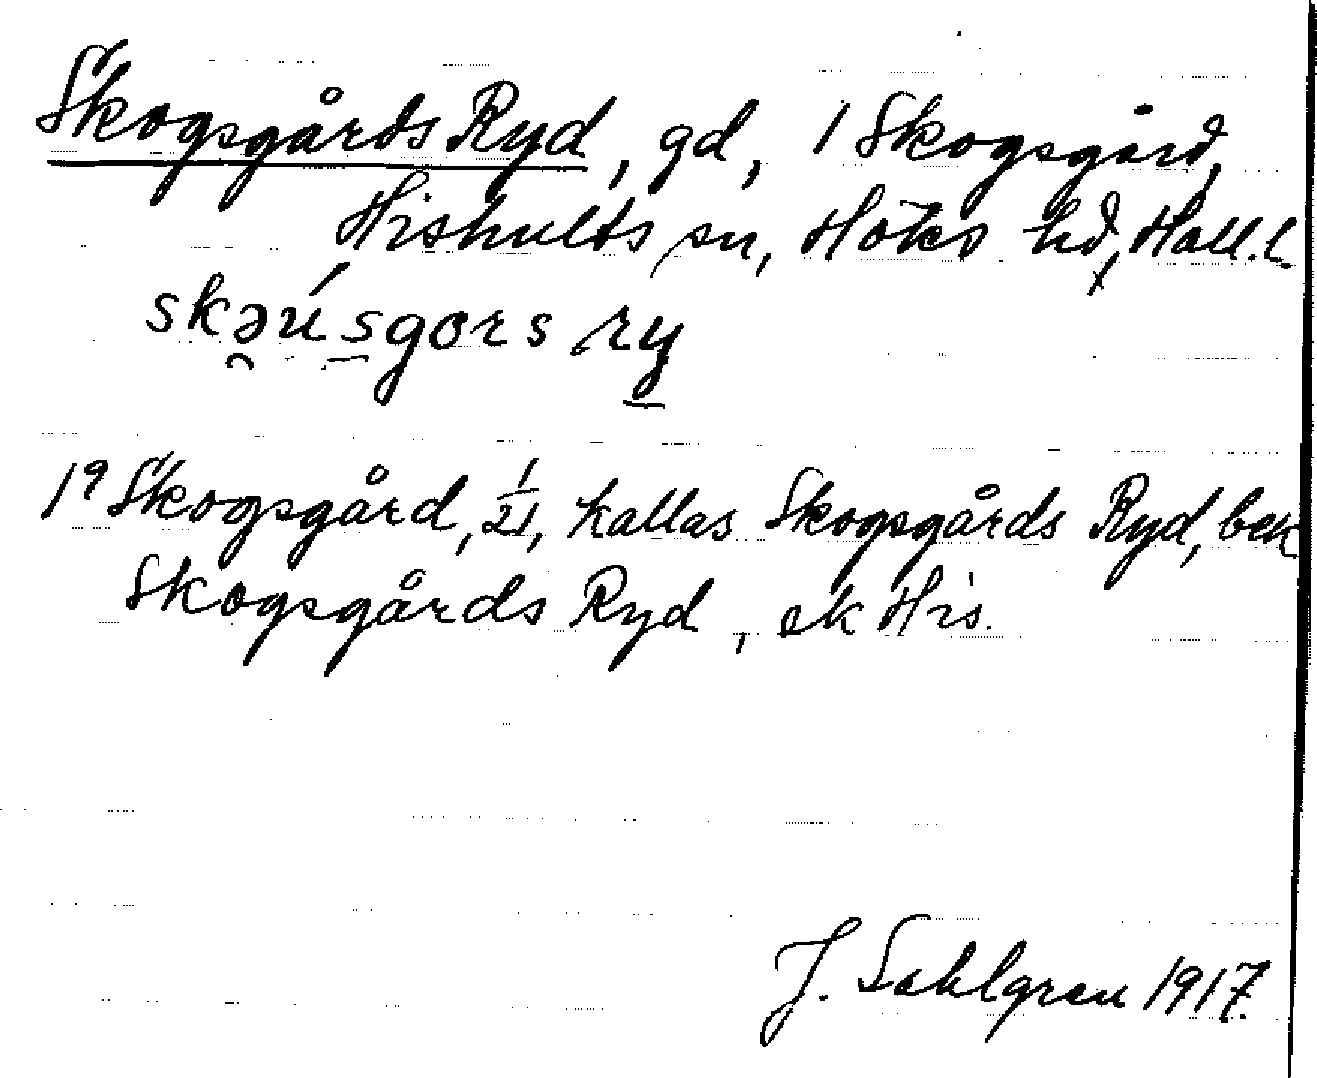 Skogsgårds Ryd, gd, 1 Skogsgård,
Hishults sn, Höks hd, Hall. l.
skəúsgors ry
1⁹ Skogsgård, 1/21, kallas Skogsgårds Ryd, bek
Skogsgårds Ryd, ek His.
J. Sahlgren 1917.